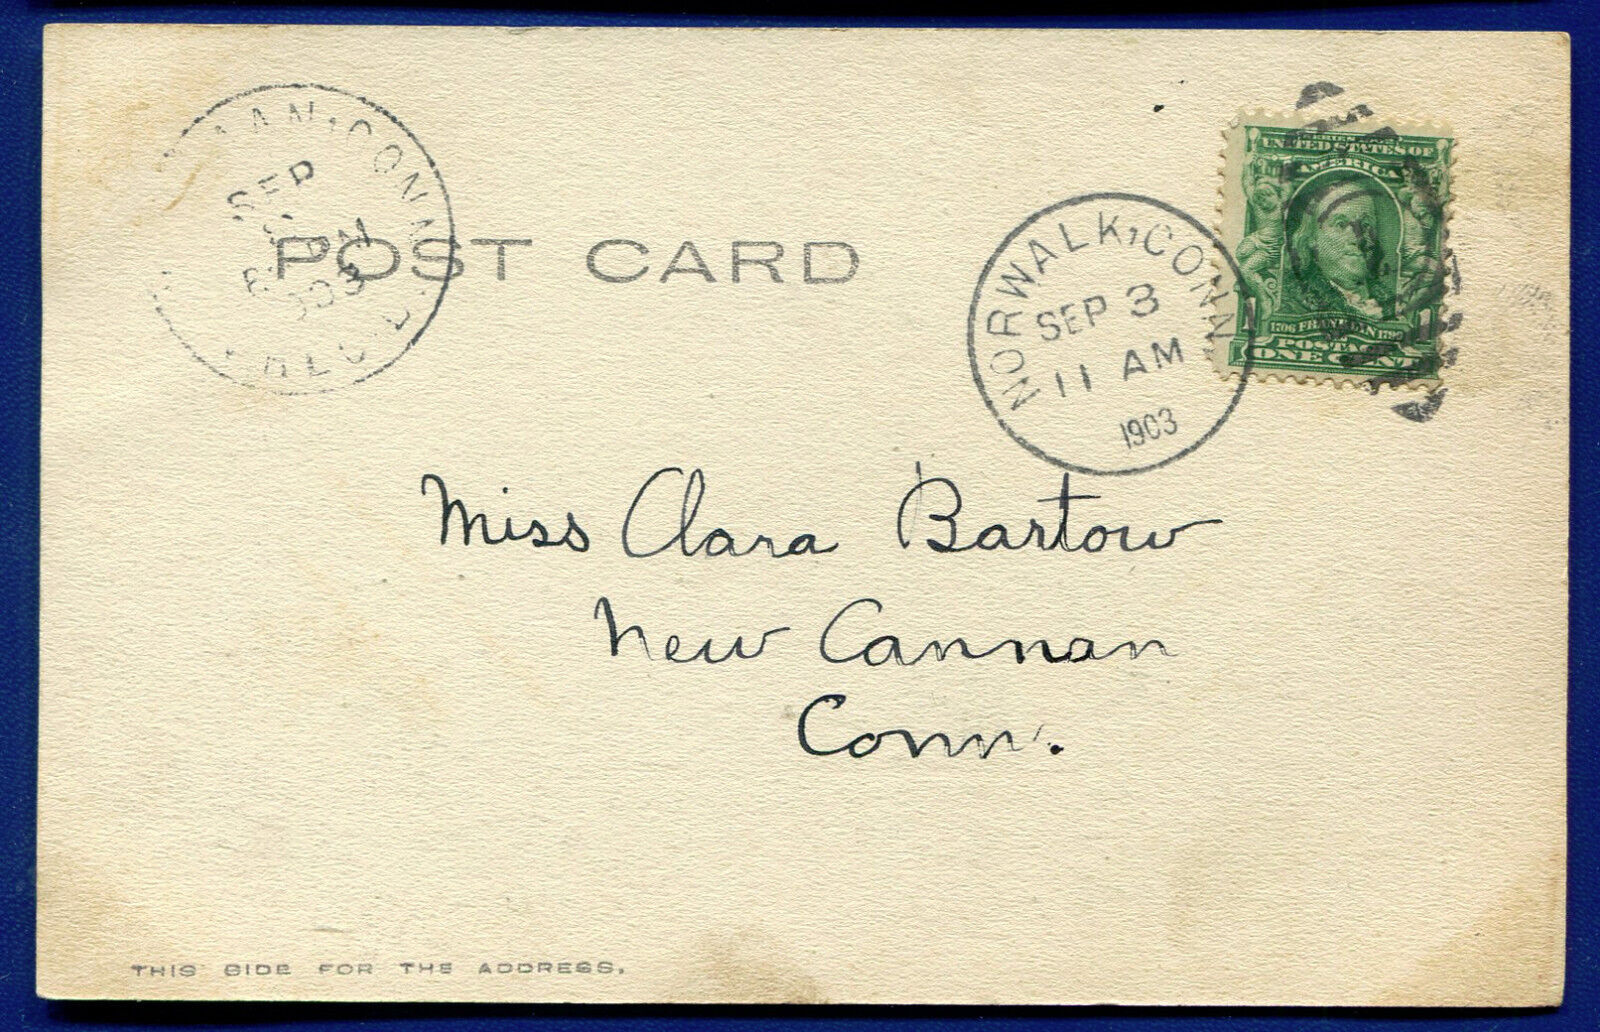 CONN.
SEP
1903
REC'D.
POST CARD
NORWALK, CONN.
SEP 3
11 AM
1903
SERIES
UNITED STATES OF
AMERICA
1706 FRANKLIN 1790
POSTAGE
1 ONE CENT 1
Miss Clara Bartow
New Cannan
Conn.
THIS SIDE FOR THE ADDRESS.